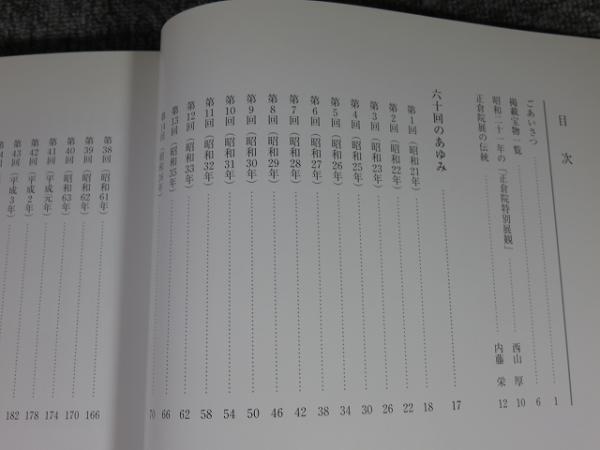 目次
ごあいさつ 1
掲載宝物一覧 6
昭和二十一年の「正倉院特別展観」 西山 厚 10
正倉院展の伝統 内藤 榮 12
六十回のあゆみ 17
第1回(昭和21年) 18
第2回(昭和22年) 22
第3回(昭和23年) 26
第4回(昭和25年) 30
第5回(昭和26年) 34
第6回(昭和27年) 38
第7回(昭和28年) 42
第8回(昭和29年) 46
第9回(昭和30年) 50
第10回(昭和31年) 54
第11回(昭和32年) 58
第12回(昭和33年) 62
第13回(昭和35年) 66
第14回(昭和36年) 70
第38回(昭和61年) 166
第39回(昭和62年) 170
第40回(昭和63年) 174
第41回(平成元年) 178
第42回(平成2年) 182
第43回(平成3年)